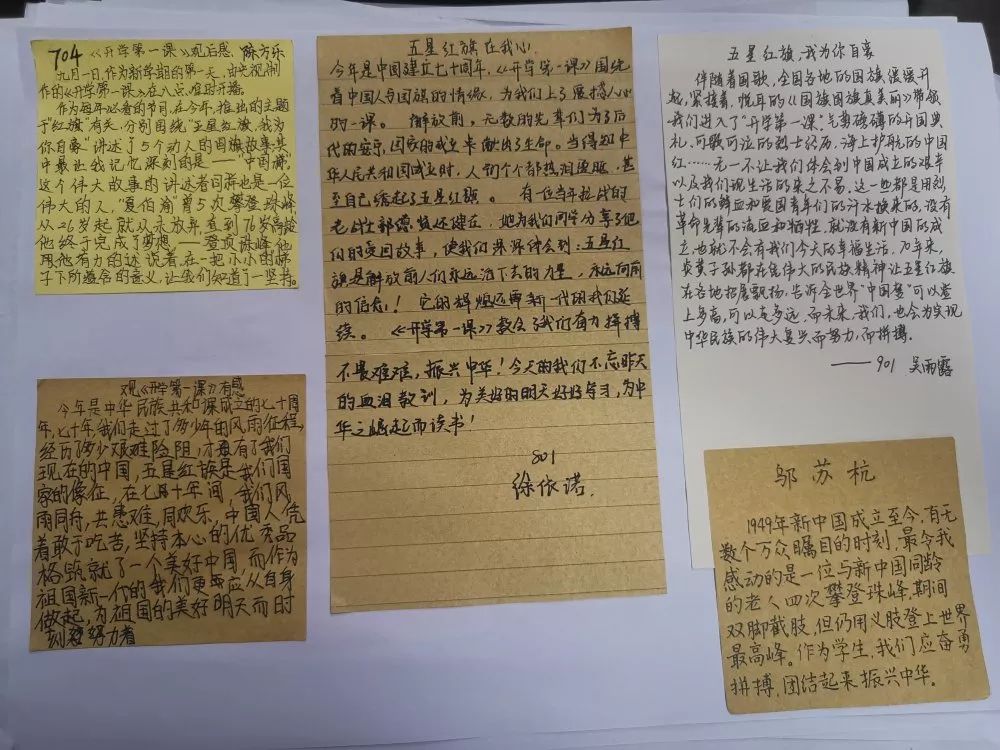 704 《开学第一课》观后感. 陈方乐
九月一日,作为新学期的第一天,由央视制
作的《开学第一课》在八点,准时开播。
作为每年必看的节目,在今年,推出的主题
于"红旗"有关,分别围绕"五星红旗,我为
你自豪"讲述了5个动人的国旗故事.其
中最让我记忆深刻的是——"中国梯",
这个伟大故事的讲述者同样也是一位
伟大的人,"夏伯渝"曾5次攀登珠峰,
从26岁起就从未放弃直到76高龄
他终于完成了梦想——登顶珠峰他
用他有力的达说着,在一把小小的梯
子下所蕴含的意义,让我们知道了一坚持。
五星红旗在我心
今年是中国建立七十周年,《开学第一课》围绕
着中国人与国旗的情缘,为我们上了震撼人心
的一课。 解放前,无数的先辈们为了后
代的安宁,国家的成立 奉献出了生命。当得知中
华人民共和国成立时,人们个个都热泪盈眶,甚
至自己绣起了五星红旗。 有一位当年抗战的
老战士郭德贤还健在,她为我们同学分享了他
们的爱国故事,使我们深深体会到:五星红
旗是解放前人们永远活下去的力量,永远向前
的信念!它的辉煌还需新一代的我们延
续。 《开学第一课》教会了我们奋力拼搏
不畏难难,振兴中华!今天的我们不忘昨天
的血泪教训,为美好的明天好好学习,为中
华之崛起而读书!
801
徐依诺.
五星红旗,我为你自豪
伴随着国歌,全国各地的国旗缓缓升
起,紧接着,悦耳的《国旗国旗真美丽》带领
我们进入了"开学第一课".气势磅礴的开国典
礼,可歌可泣的烈士经历,海上护航的中国
红……无一不让我们体会到中国成立的艰辛
以及我们现生活的来之不易。这一些都是用烈
士们的鲜血和爱国青年们的汗水换来的,没有
革命先辈的流血和牺牲,就没有新中国的成
立,也就不会有我们今天的幸福生活,70年来,
炎黄子孙都在凭伟大的民族精神让五星红旗
在各地招展飘扬,告诉全世界"中国梦"可以登
上多高,可以走多远.而未来,我们,也会为实现
中华民族的伟大复兴而努力,而拼搏.
——901 吴雨露
观《开学第一课》有感
今年是中华民族共和课成立的七十周
年,七十年我们走过了多少年的风雨征程,
经历了多少艰难险阻,才最有了我们
现在的中国,五星红旗是我们国
家的像征,在七十年间,我们风
雨同舟,共患难,同欢乐,中国人凭
着敢于吃苦,坚持本心的优秀品
格甄就了一个美好中国 而作为
祖国新一代的我们更应从自身
做起,为祖国的美好明天而时
刻努力着
邬苏杭
1949年新中国成立至今,有无
数个万众瞩目的时刻,最令我
感动的是一位与新中国同龄
的老人四次攀登珠峰,期间
双脚截肢,但仍用义肢登上世界
最高峰。作为学生,我们应奋勇
拼搏,团结起来振兴中华。